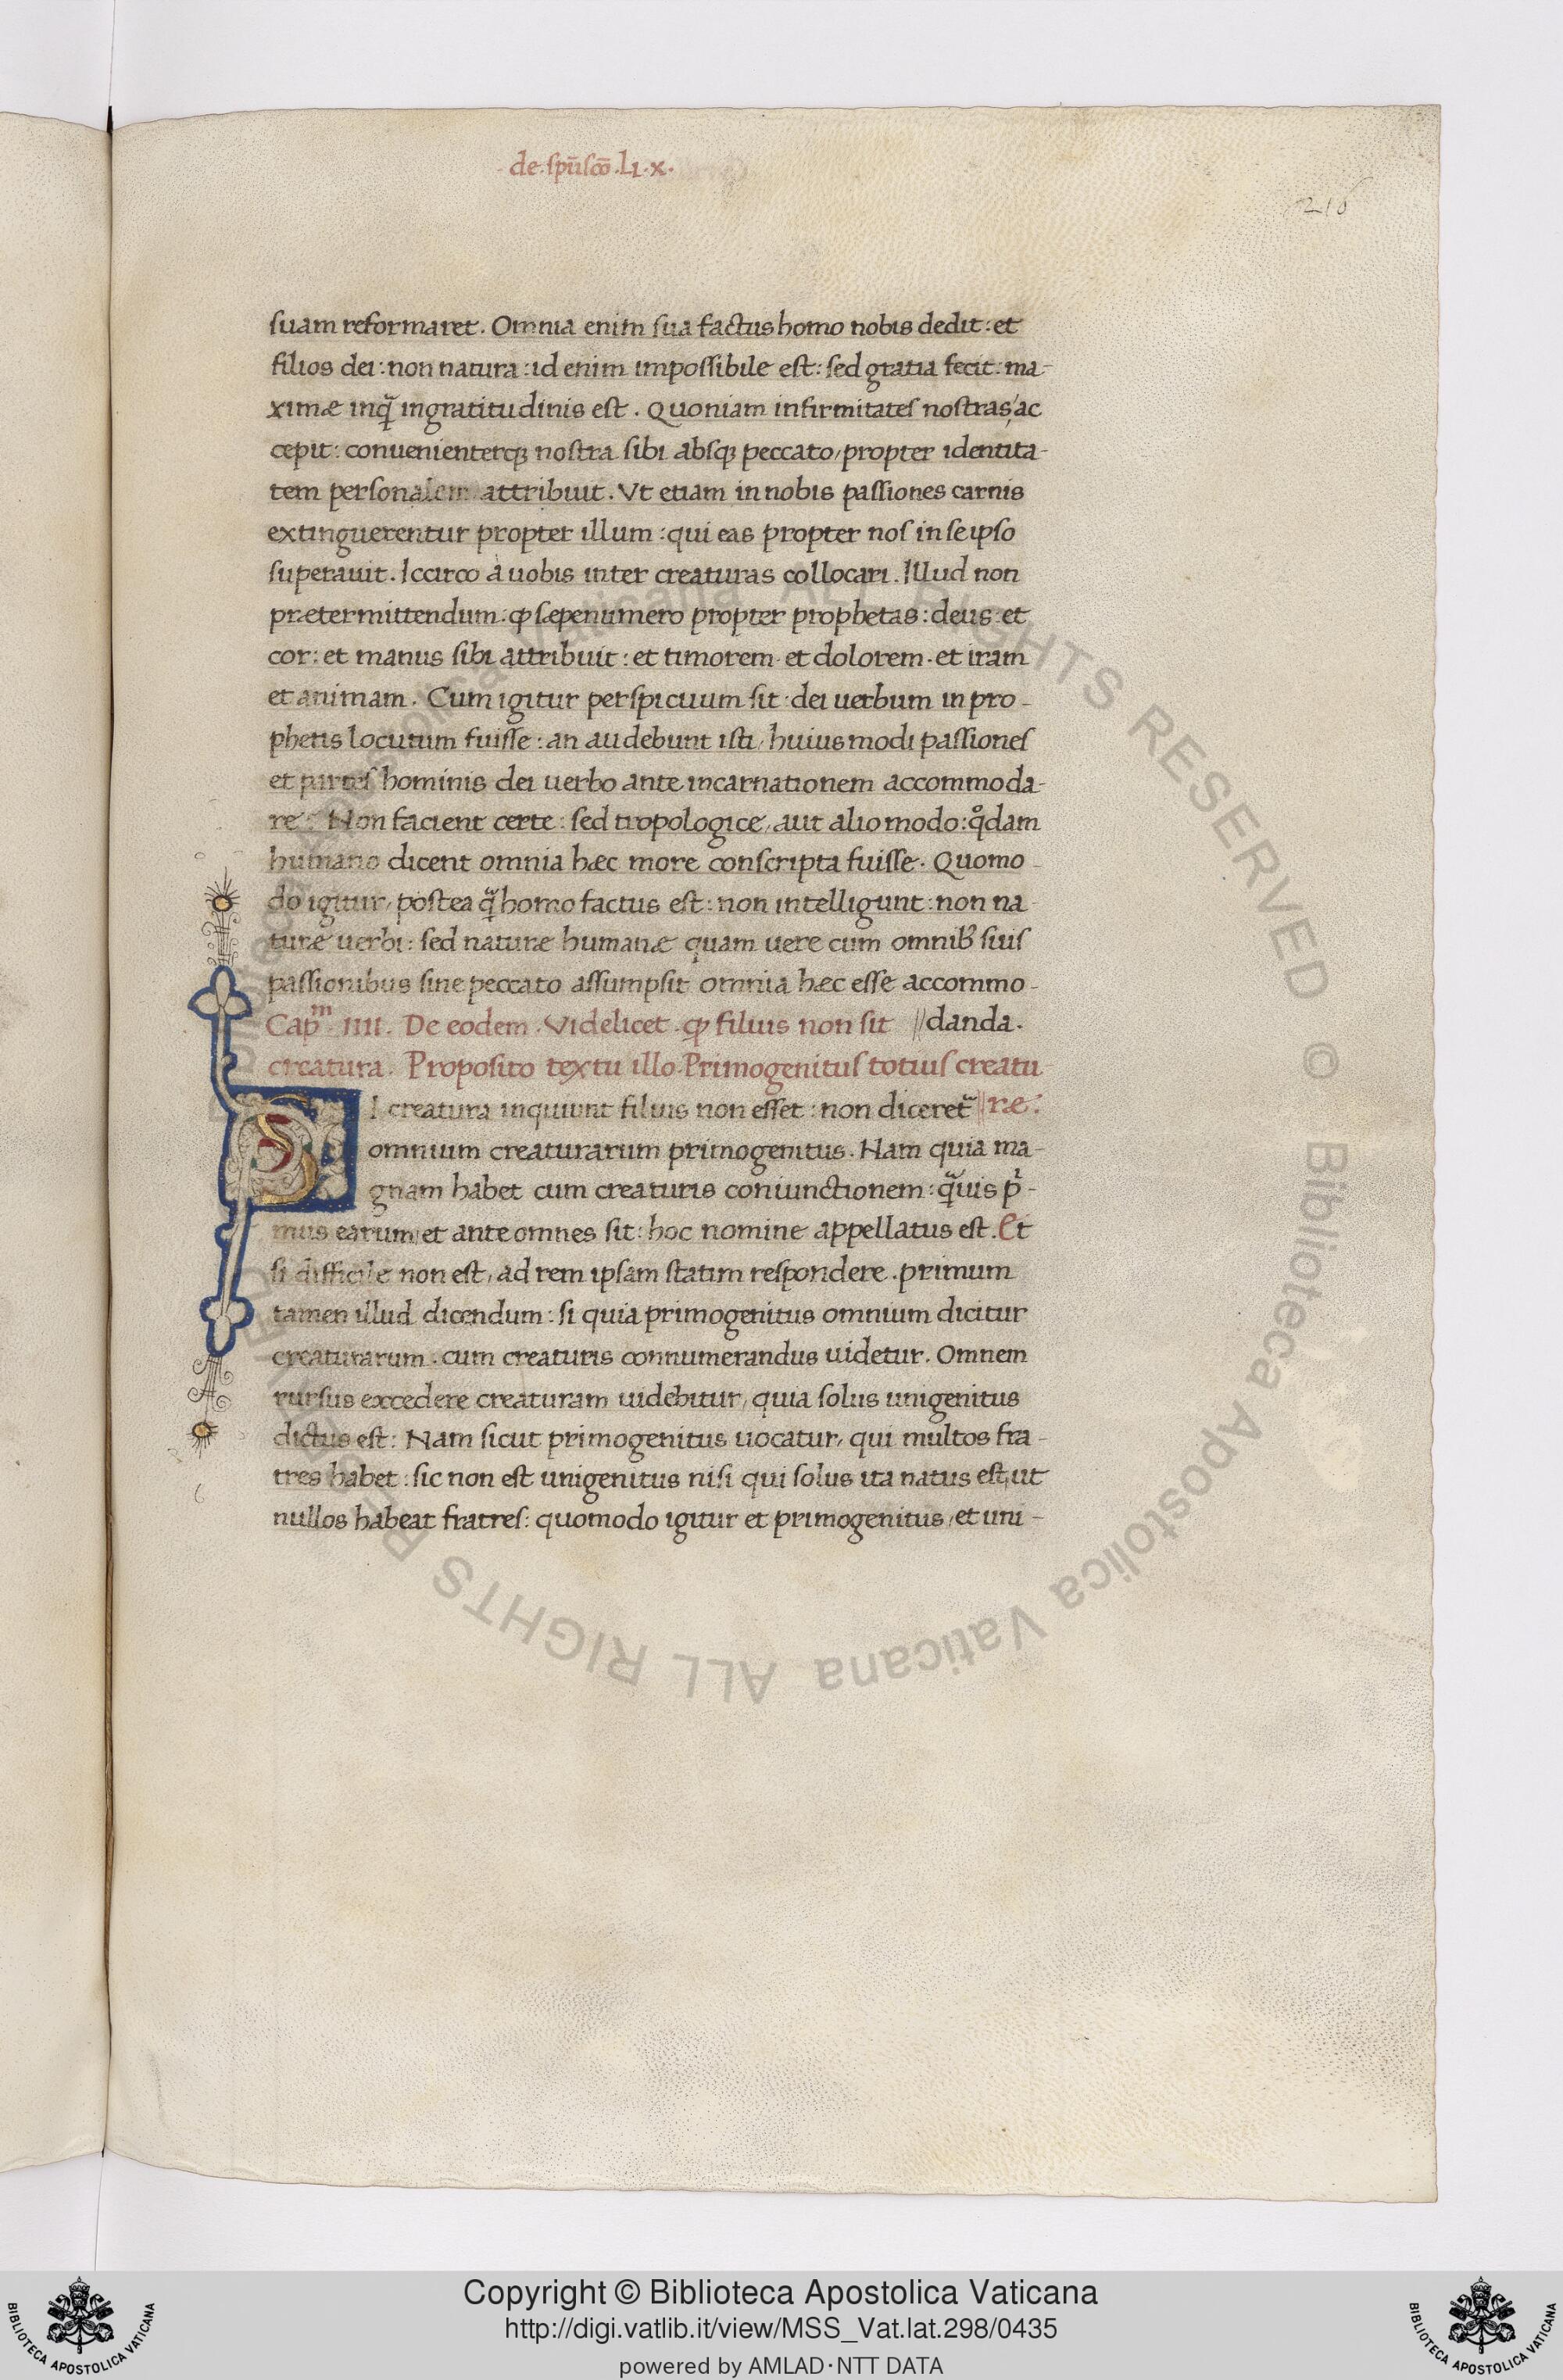 de. spūscō. Li. x.
216
suam reformaret. Omnia enim sua factus homo nobis dedit: et
filios dei: non natura: id enim impossibile est: sed gratia fecit: ma-
ximæ inq̃ ingratitudinis est. Quoniam infirmitates nostras, ac
cepit: conuenienterq; nostra sibi absq; peccato, propter identita-
tem personalem attribuit. Vt etiam in nobis passiones carnis
extinguerentur propter illum: qui eas propter nos in se ipso
superauit. Iccirco a uobis inter creaturas collocari. Illud non
prætermittendum: ꝙ sæpenumero propter prophetas: deus: et
cor: et manus sibi attribuit: et timorem. et dolorem. et iram
et animam. Cum igitur perspicuum sit: dei uerbum in pro-
phetis locutum fuisse: an audebunt isti, huiusmodi passiones
et partes hominis dei uerbo ante incarnationem accommoda-
re: Non facient certe: sed tropologice, aut alio modo: q̊dam
humano dicent omnia hæc more conscripta fuisse. Quomo-
do igitur, postea q̃ homo factus est: non intelligunt: non na-
turæ uerbi: sed naturæ humanæ quam uere cum omnib; suis
passionibus sine peccato assumpsit omnia hæc esse accommo-
Cap̃ᵐ. IIII. De eodem. Videlicet. ꝙ filius non sit //danda.
creatura. Proposito textu illo. Primogenitus totius creatu
SI creatura inquiunt filius non esset: non diceret᷑ //ræ:
omnium creaturarum primogenitus. Nam quia ma-
gnam habet cum creaturis coniunctionem: q̃uis p̍-
mus earum, et ante omnes sit: hoc nomine appellatus est. Et
si difficile non est, ad rem ipsam statim respondere. primum
tamen illud dicendum: si quia primogenitus omnium dicitur
creaturarum: cum creaturis connumerandus uidetur. Omnem
rursus excedere creaturam uidebitur, quia solus unigenitus
dictus est: Nam sicut primogenitus uocatur, qui multos fra-
tres habet: sic non est unigenitus nisi qui solus ita natus est, ut
nullos habeat fratres: quomodo igitur et primogenitus, et uni-
© Biblioteca Apostolica Vaticana ALL RIGHTS RESERVED
Copyright © Biblioteca Apostolica Vaticana
http://digi.vatlib.it/view/MSS_Vat.lat.298/0435
powered by AMLAD·NTT DATA
BIBLIOTECA APOSTOLICA VATICANA
BIBLIOTECA APOSTOLICA VATICANA